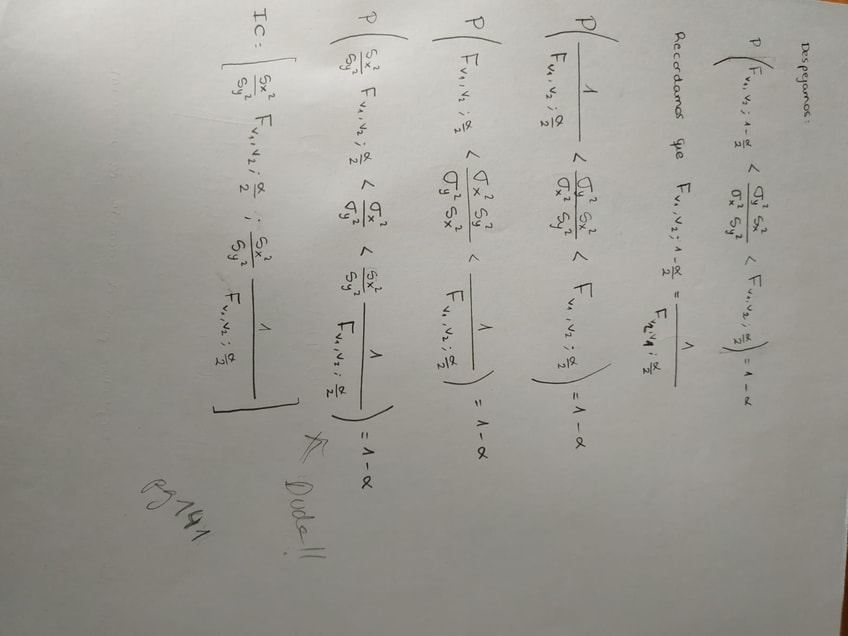 Despejamos:
P ( F v₁, v₂ ; 1 - α/2 < σy² Sx² / σx² Sy² < F v₁, v₂ ; α/2 ) = 1 - α
Recordamos que F v₁, v₂ ; 1 - α/2 = 1 / F v₂, v₁ ; α/2
P ( 1 / F v₁, v₂ ; α/2 < σy² Sx² / σx² Sy² < F v₁, v₂ ; α/2 ) = 1 - α
P ( F v₁, v₂ ; α/2 < σx² Sy² / σy² Sx² < 1 / F v₁, v₂ ; α/2 ) = 1 - α
P ( Sx² / Sy² F v₁, v₂ ; α/2 < σx² / σy² < Sx² / Sy² 1 / F v₁, v₂ ; α/2 ) = 1 - α
Duda!!
IC: [ Sx² / Sy² F v₁, v₂ ; α/2 ; Sx² / Sy² 1 / F v₁, v₂ ; α/2 ]
pg 141